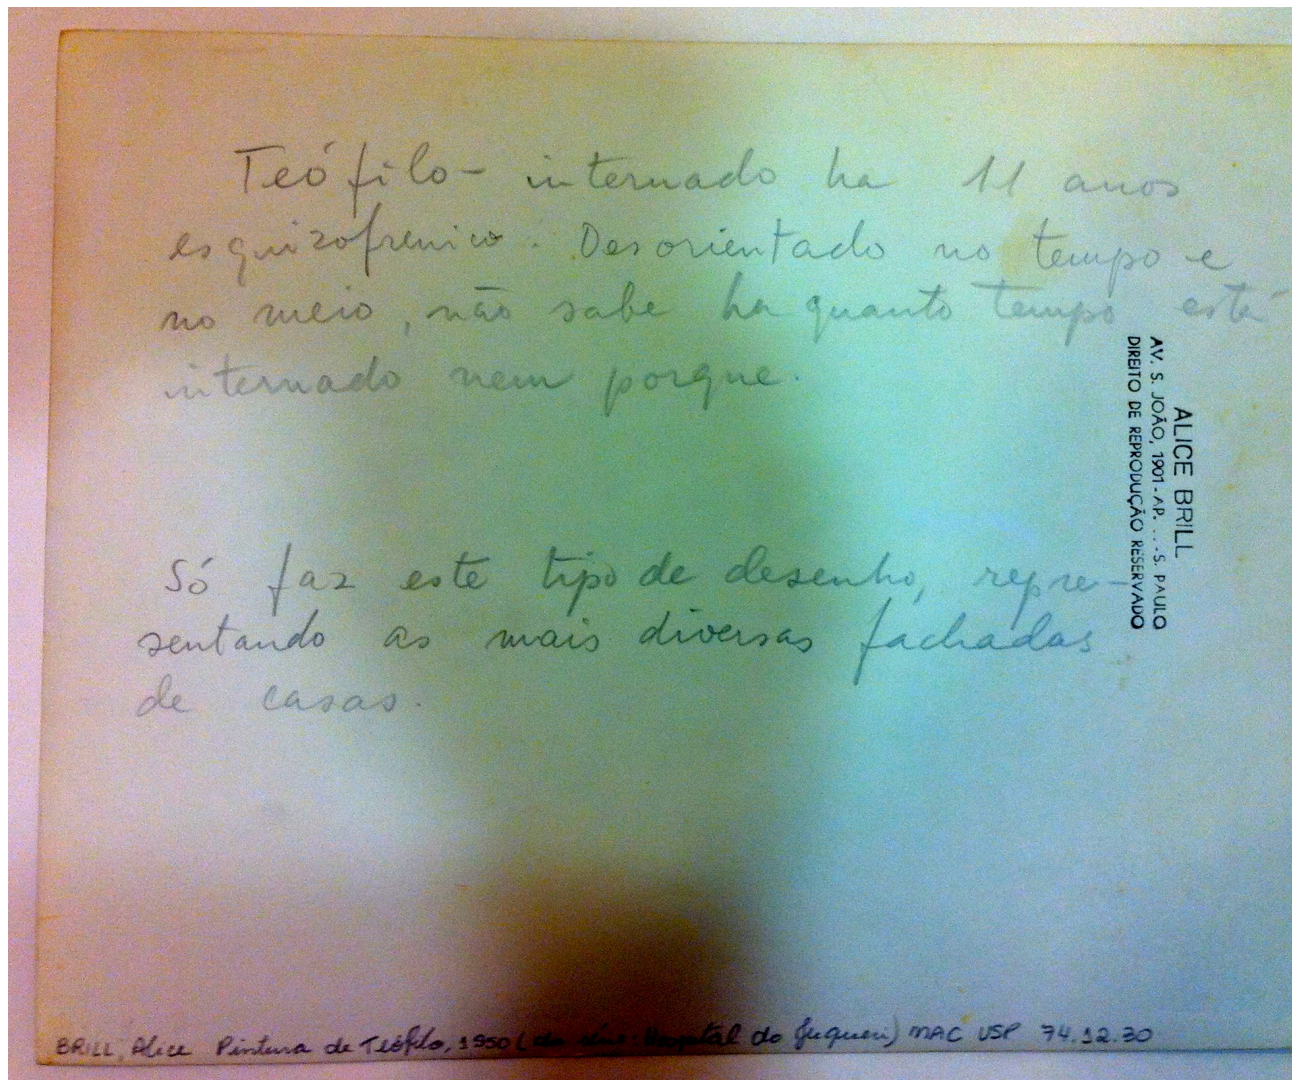 Teófilo - internado ha 11 anos
esquizofrenico. Desorientado no tempo e
no meio, não sabe ha quanto tempo está
internado nem porque.
Só faz este tipo de desenho, repre-
sentando as mais diversas fachadas
de casas.
ALICE BRILL
AV. S. JOÃO, 1901 - AP. ... - S. PAULO
DIREITO DE REPRODUÇÃO RESERVADO
BRILL, Alice Pintura de Teófilo, 1950 (da série: Hospital do Juqueri) MAC USP 74.12.30